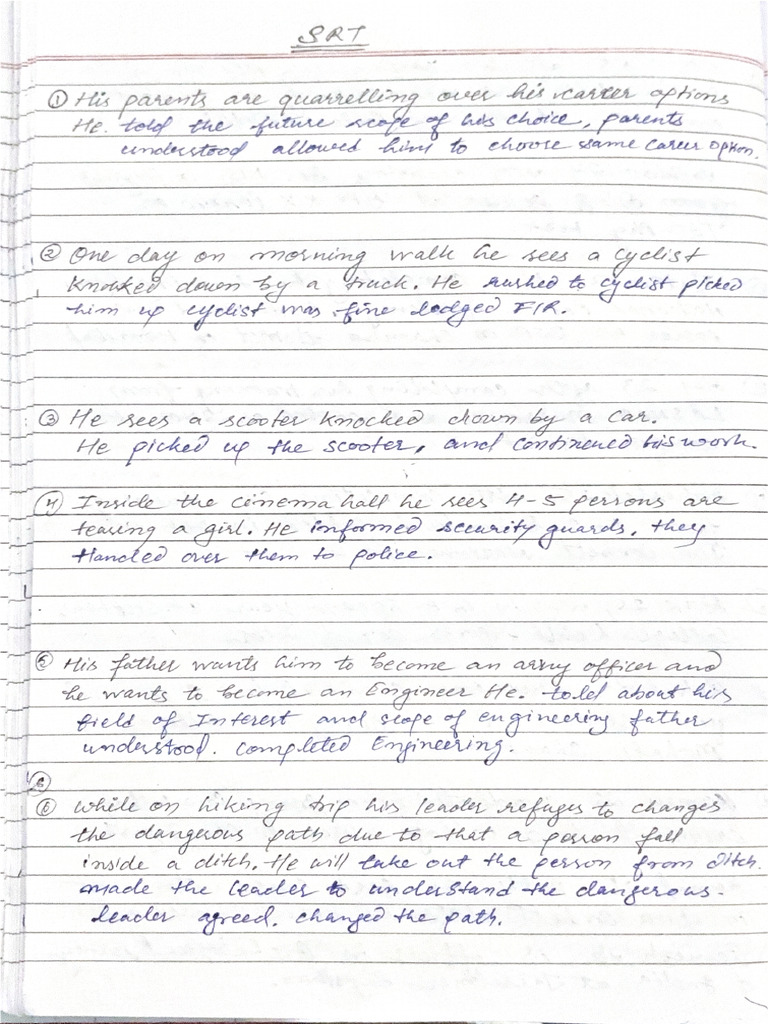 SRT
① His parents are quarrelling over his career options
He. told the future scope of his choice, parents
understood allowed him to choose same career option.
② One day on morning walk he sees a cyclist
knocked down by a truck. He rushed to cyclist picked
him up cyclist was fine lodged FIR.
③ He sees a scooter knocked down by a car.
He picked up the scooter, and continued his work.
④ Inside the cinema hall he sees 4-5 persons are
teasing a girl. He informed security guards, they
Handed over them to police.
⑤ His father wants him to become an army officer and
he wants to become an Engineer He. told about his
field of Interest and scope of engineering father
understood. completed Engineering.
⑥
⑥ while on hiking trip his leader refuges to changes
the dangerous path due to that a person fall
inside a ditch. He will take out the person from ditch.
made the leader to understand the dangerous.
leader agreed. changed the path.